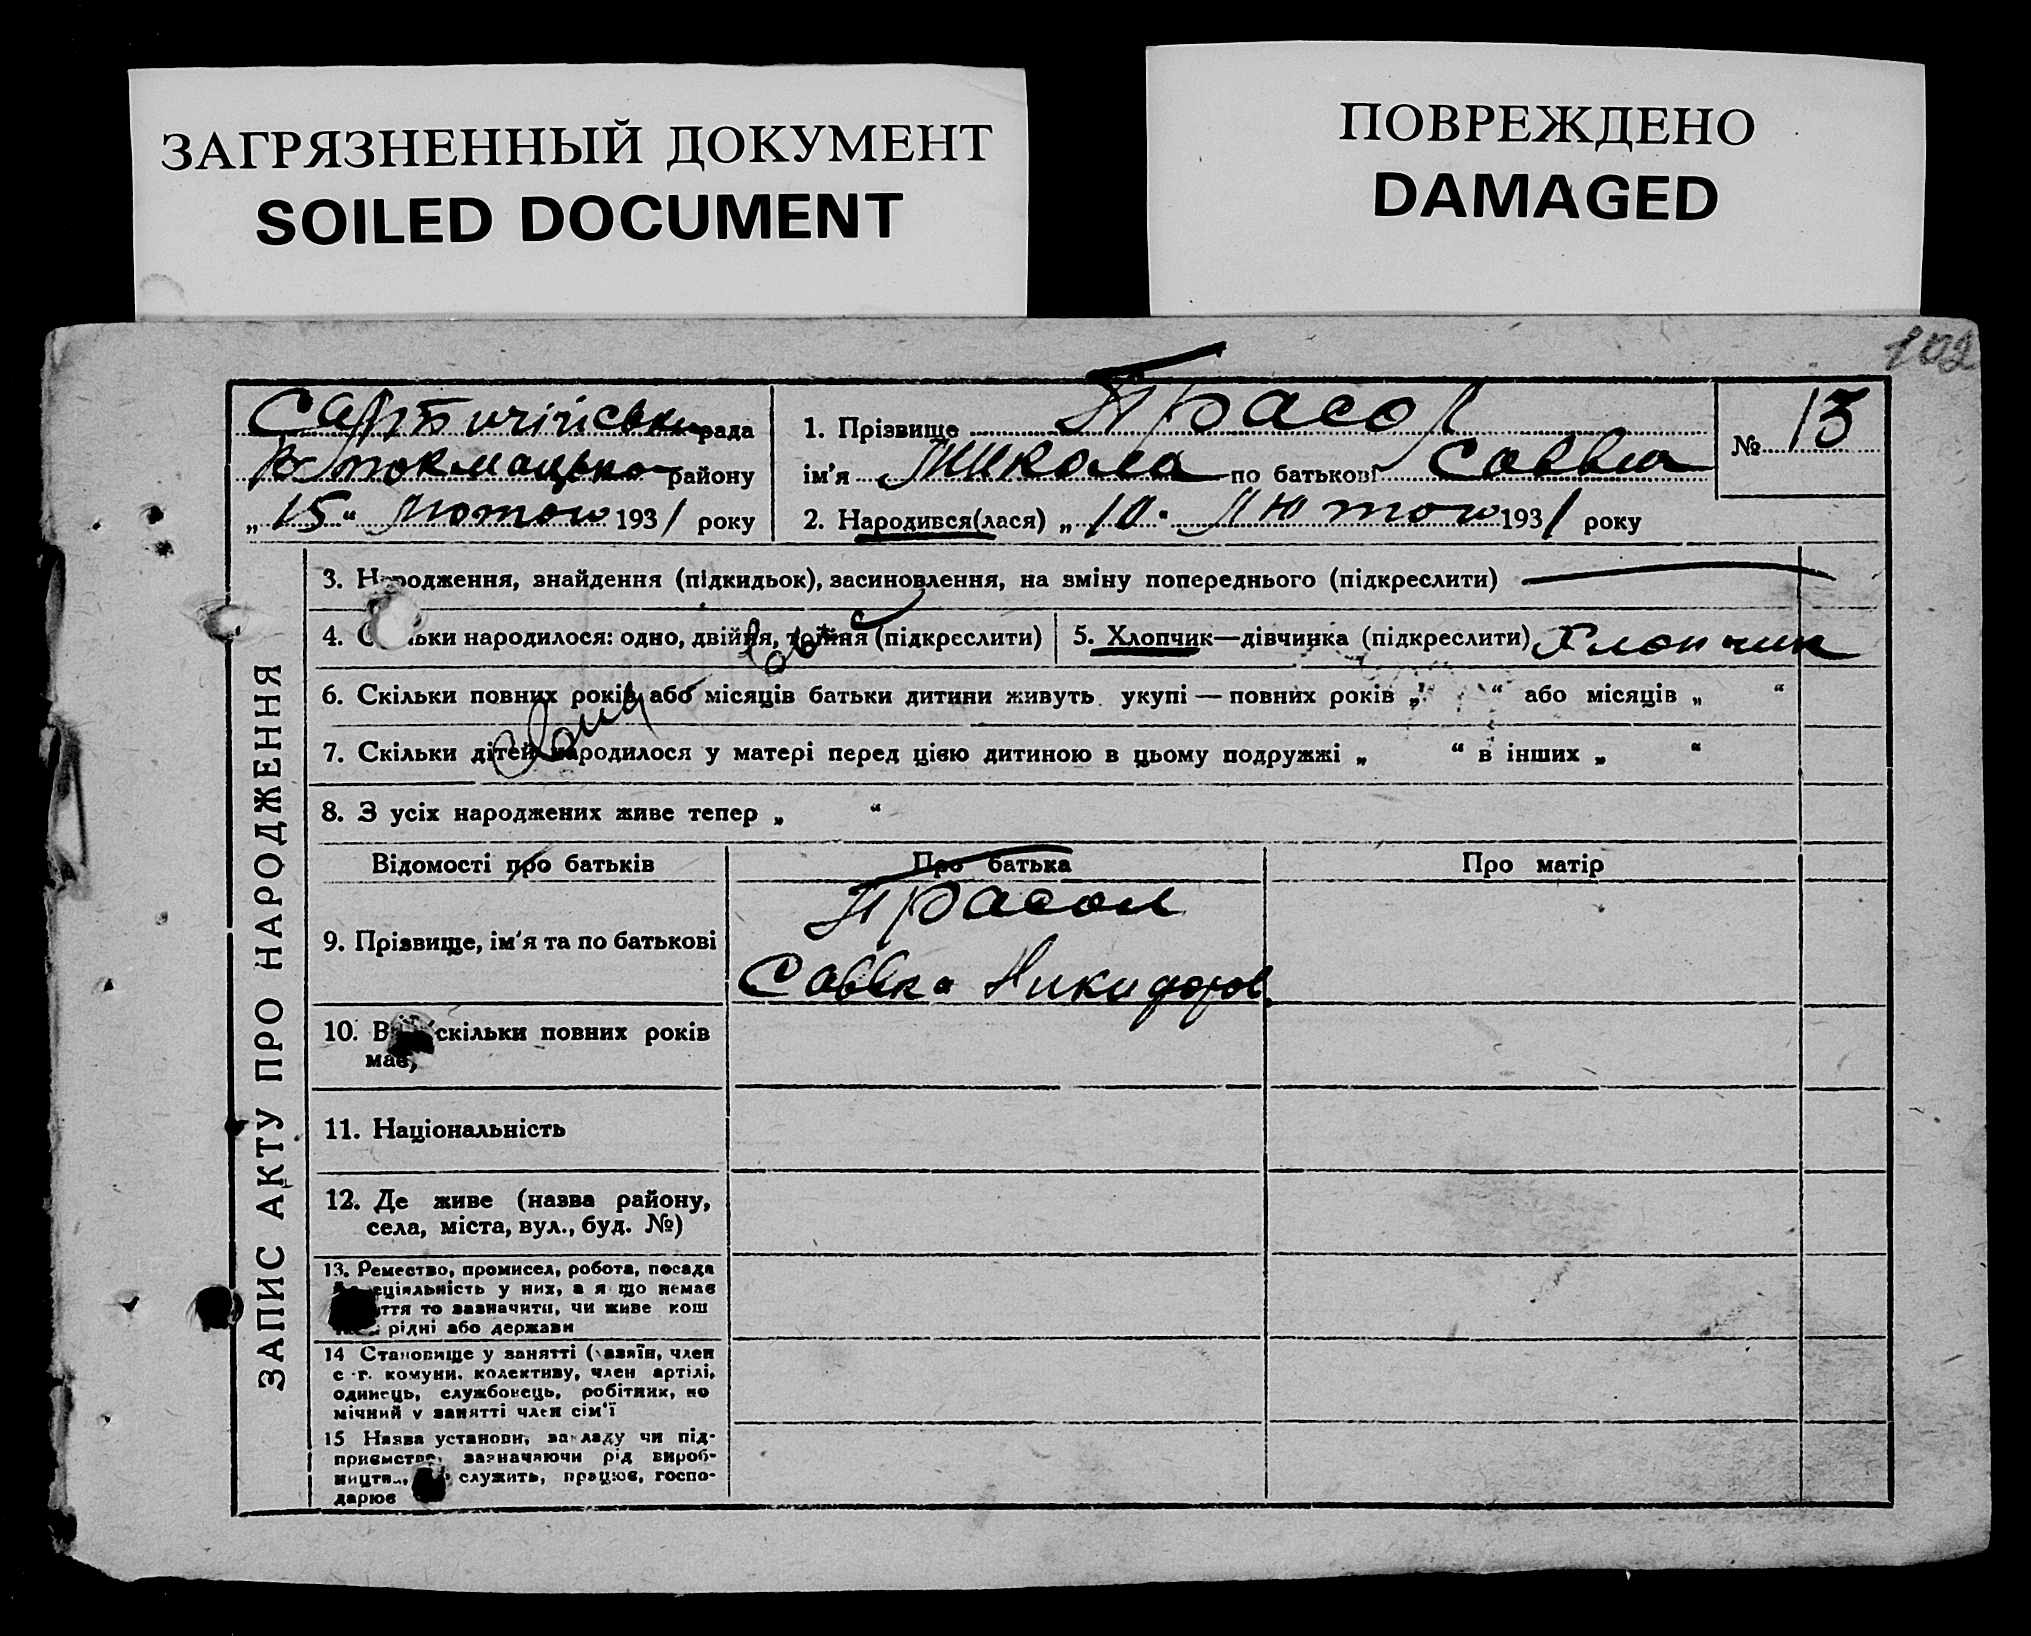 ЗАГРЯЗНЕННЫЙ ДОКУМЕНТ
SOILED DOCUMENT
ПОВРЕЖДЕНО
DAMAGED
102
рада
району
„ 15 “ Лютого 1931 року
1. Прізвище Прасол
ім'я Микола по батькові Савви
2. Народився(лася) „ 10 “ Лютого 1931 року
№ 13
ЗАПИС АКТУ ПРО НАРОДЖЕННЯ
3. Народження, знайдення (підкидьок), засиновлення, на зміну попереднього (підкреслити)
4. Скільки народилося: одно, двійня, трійня (підкреслити)
5. Хлопчик—дівчинка (підкреслити) Хлопчик
6. Скільки повних років або місяців батьки дитини живуть укупі — повних років „ “ або місяців „ “
7. Скільки дітей народилося у матері перед цією дитиною в цьому подружжі „ “ в інших „ “
8. З усіх народжених живе тепер „ “
Відомості про батьків
Про батька
Про матір
9. Прізвище, ім'я та по батькові
Прасол
Савка Никифоров.
10. скільки повних років
має,
11. Національність
12. Де живе (назва району,
села, міста, вул., буд. №)
13. Ремество, промисел, робота, посада
еціяльність у них, а я що немає
ття то зазначити, чи живе кош
рідні або держави
14 Становище у занятті ( азяїн, член
с.-г. комуни, колективу, член артілі,
одинець, службовець, робітник, по
мічний у занятті член сім'ї
15 Назва установи, закладу чи під-
приємства, зазначаючи рід вироб-
ництв, служить, працює, госпо-
дарює